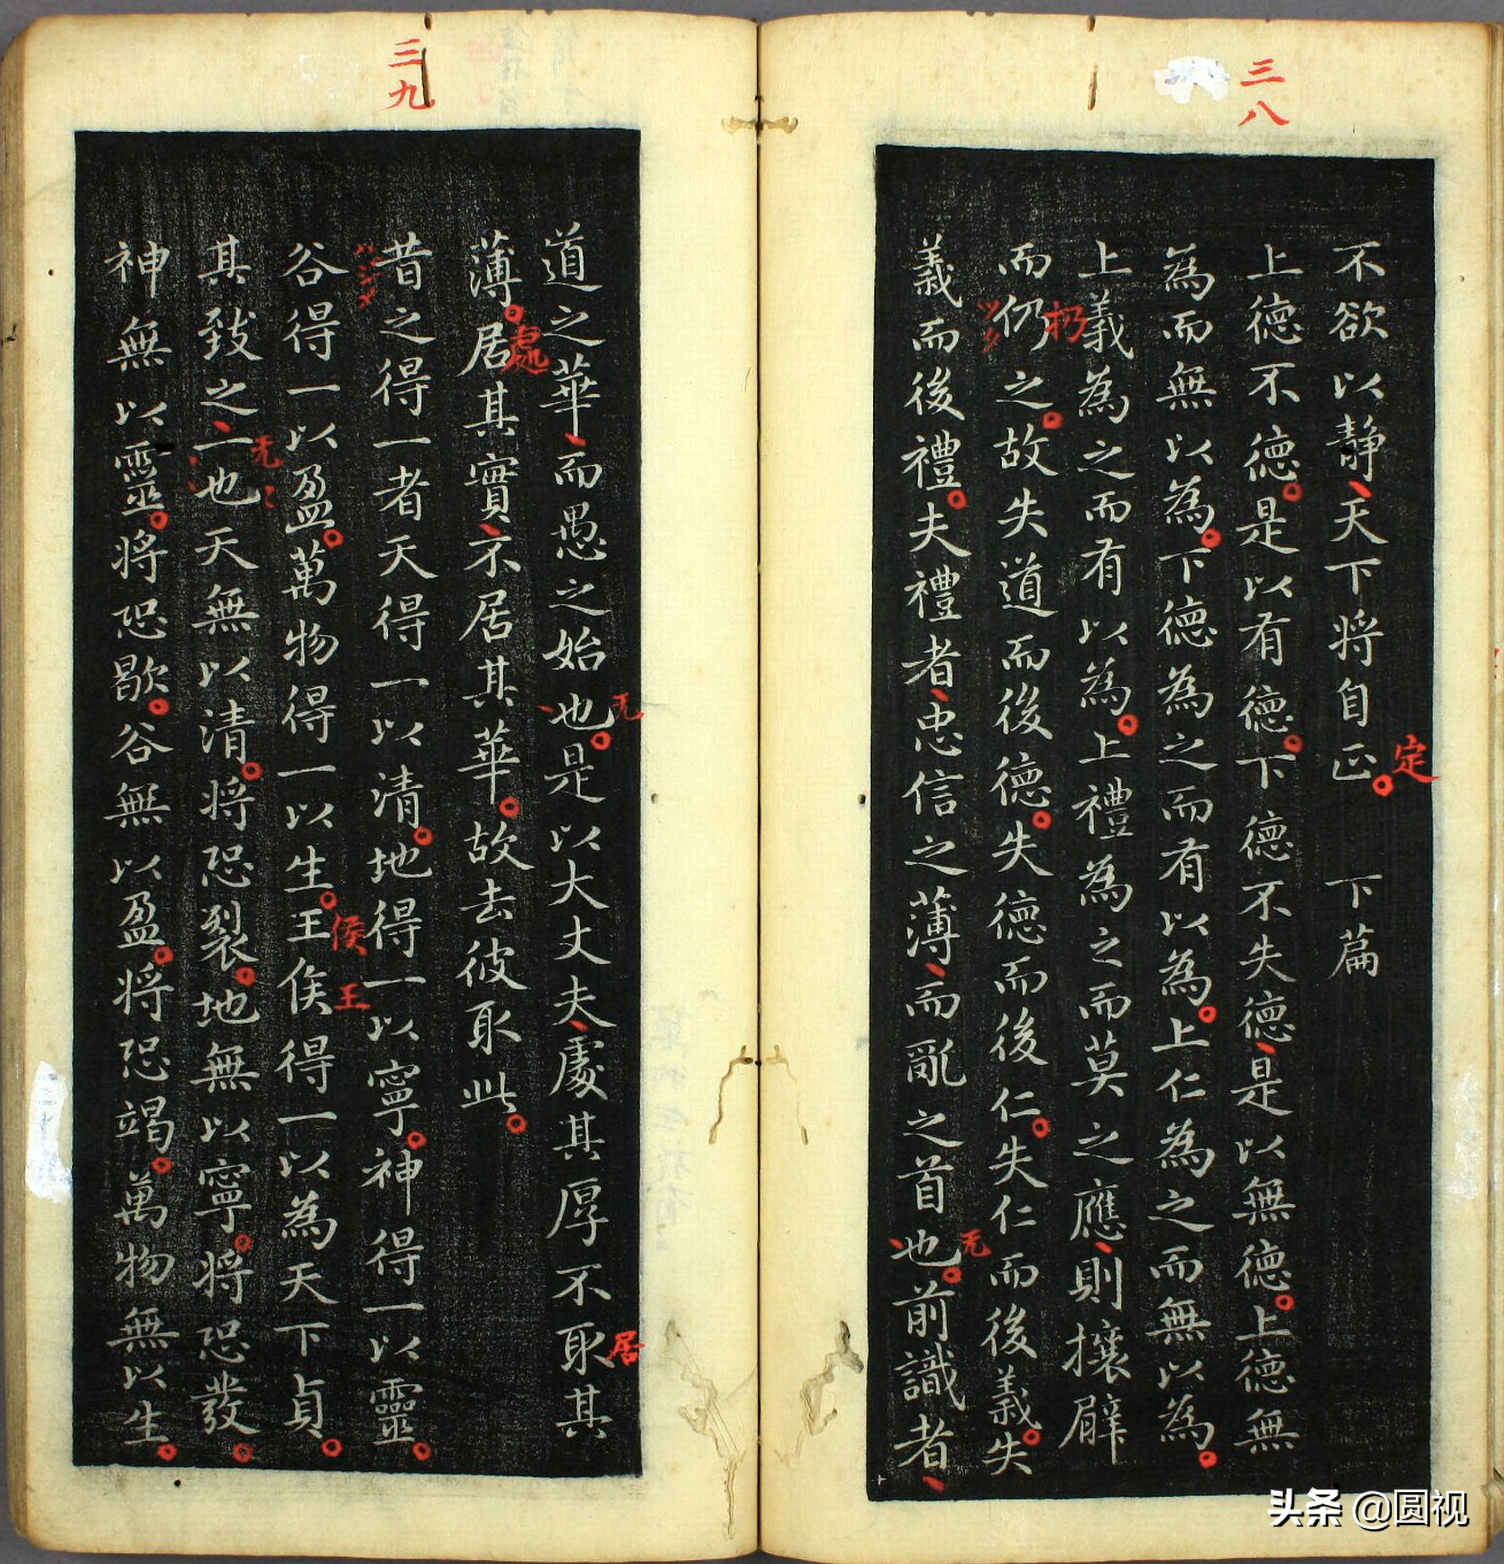 三八
不欲以靜天下将自正　下篇
定
上德不德是以有德下德不失德是以無德上德無
為而無以為下德為之而有以為上仁為之而無以為
上義為之而有以為上禮為之而莫之應則攘臂
扔
而仍之故失道而後德失德而後仁失仁而後義失
義而後禮夫禮者忠信之薄而亂之首也前識者
无
三九
道之華而愚之始也是以大丈夫處其厚不取其
无
居
薄居其實不居其華故去彼取此
處
昔之得一者天得一以清地得一以寧神得一以靈
谷得一以盈萬物得一以生王侯得一以為天下貞
侯王
其致之一也天無以清将恐裂地無以寧将恐發
无
神無以靈将恐歇谷無以盈将恐竭萬物無以生
头条 @圆视